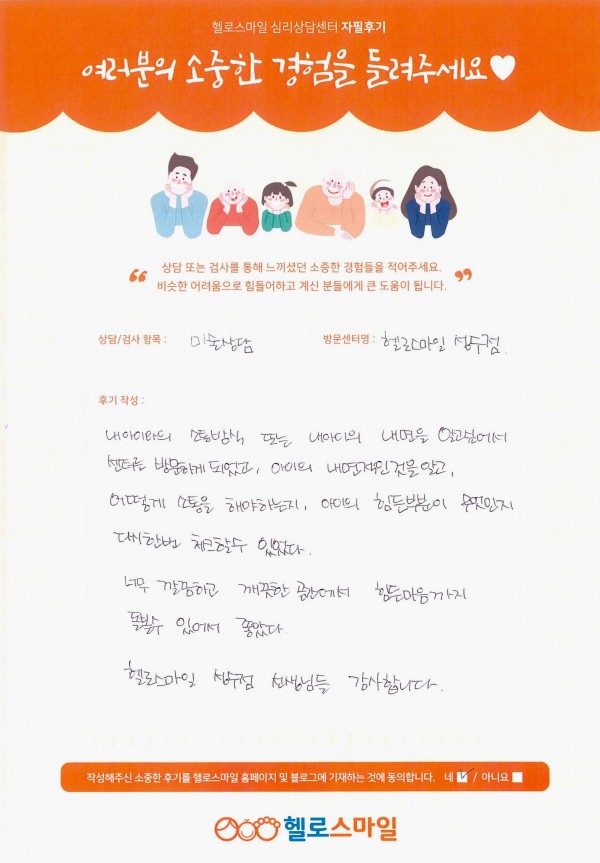 헬로스마일 심리상담센터 자필후기
여러분의 소중한 경험을 들려주세요♥
상담 또는 검사를 통해 느끼셨던 소중한 경험들을 적어주세요.
“ 비슷한 어려움으로 힘들어하고 계신 분들에게 큰 도움이 됩니다. ”
상담/검사 항목 : 미술상담 방문센터명 : 헬로스마일 성수점.
후기 작성 :
내아이와의 소통방식 또는 내아이의 내면을 알고싶어서
센터를 방문하게 되었고, 아이의 내면적인것을 알고,
어떻게 소통을 해야하는지, 아이의 힘든부분이 무엇인지
다시한번 체크할수 있었다.
너무 깔끔하고 깨끗한 공간에서 힘든마음까지
돌볼수 있어서 좋았다.
헬로스마일 성수점 선생님들 감사합니다.
작성해주신 소중한 후기를 헬로스마일 홈페이지 및 블로그에 기재하는 것에 동의합니다. 네 ☑ / 아니요 □
헬로스마일